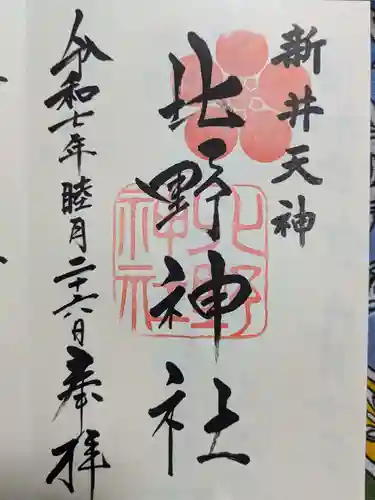 新井天神
北野神社
北野
神社
令和七年睦月二十六日奉拝